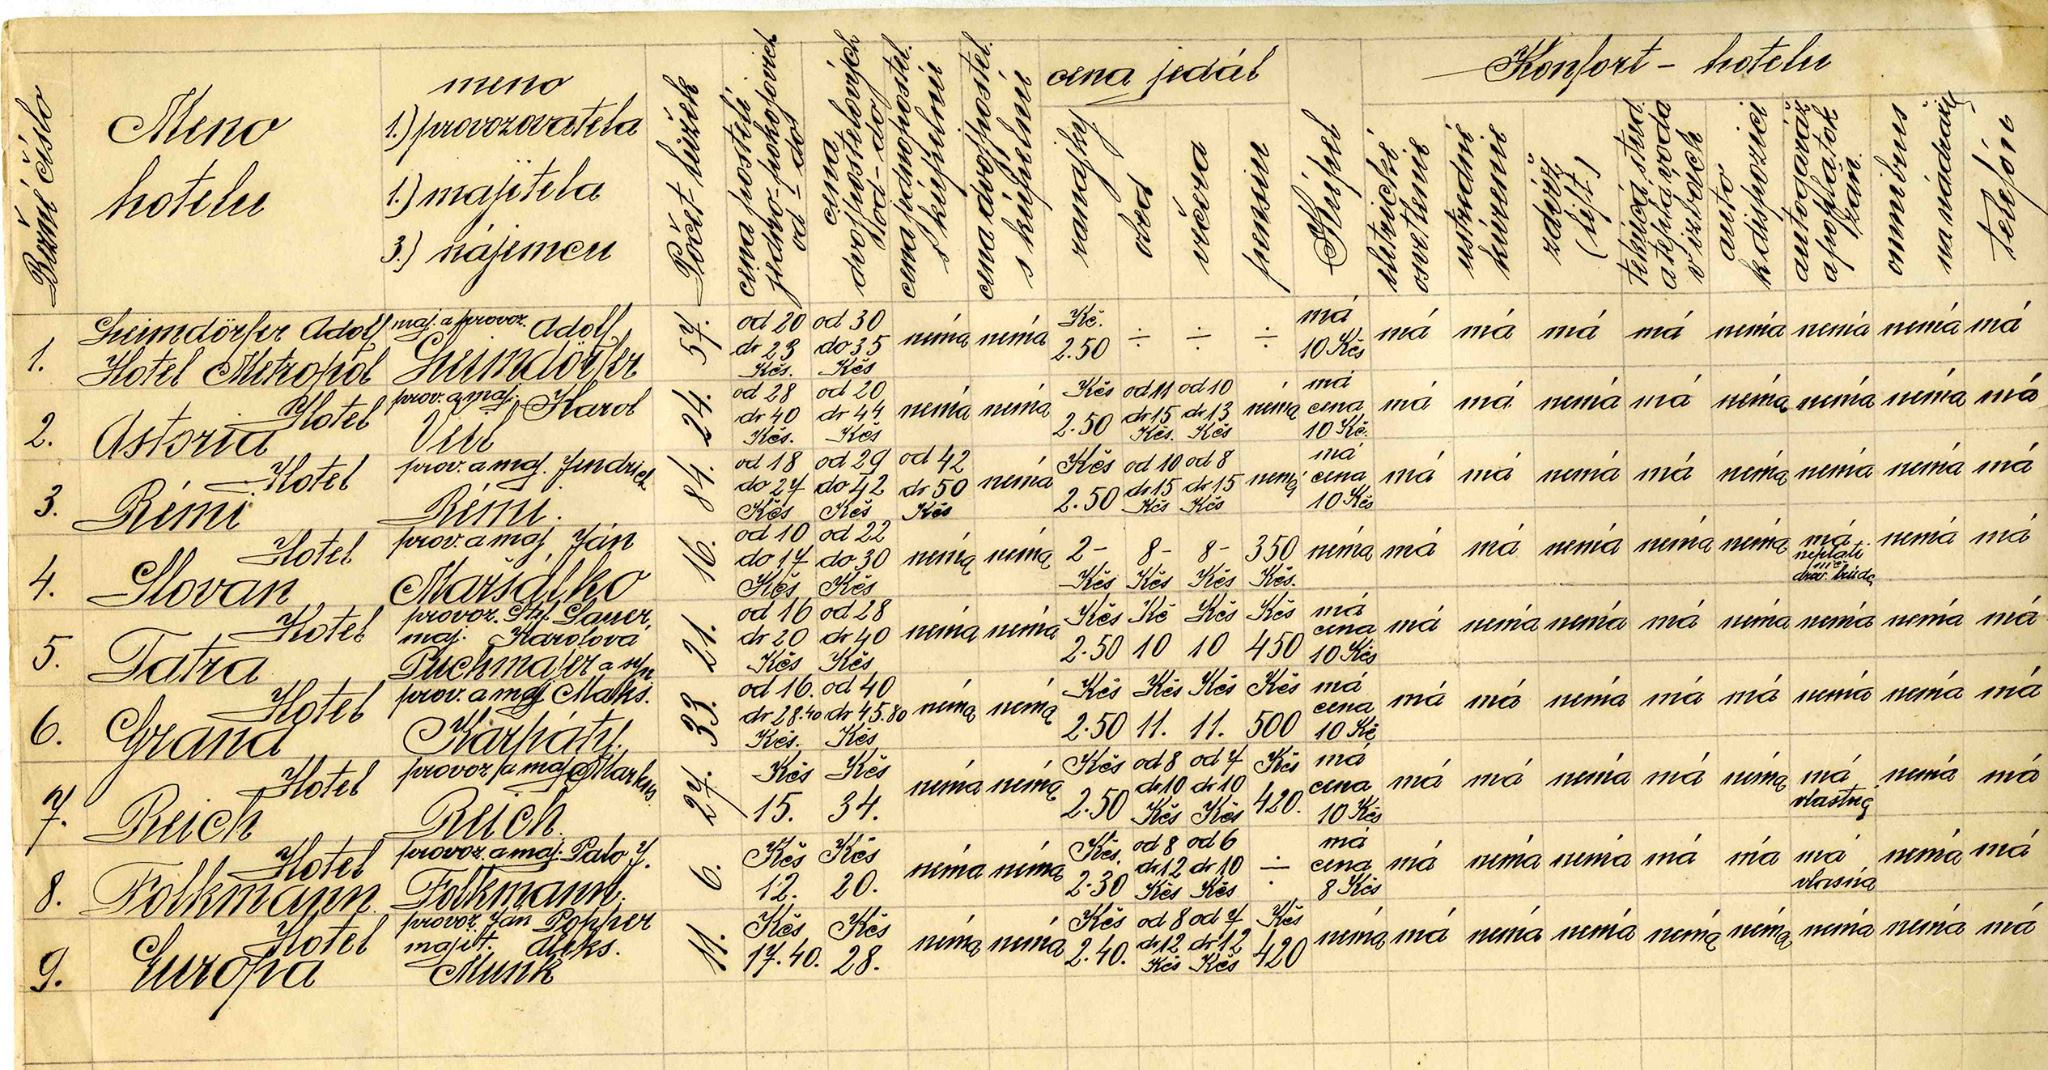 Bežné číslo
Meno hotelu
meno
1.) provozovatela
1.) majitela
3.) nájemcu
Počet lužiek
cena posteli jedno-pokojových od - do
cena dvojpostelových od - do
cena jednopostel. s kúpelnú
cena dvojpostel. s kúpelnú
cena jedál
ranajky
obed
večera
pensiu
Kúpel
Konfort - hotelu
elektrické osvetlenie
ustredné kúrenie
zdviž (lift)
tekúca stud. a teplá voda v izbách
auto k dispozici
autogaráž a poplatok
omnibus na nádraží
telefón
1. Heimdörfer Adolf Hotel Metropol maj. a provoz. Adolf Heimdörfer 57. od 20 do 23 Kčs. od 30 do 35 Kčs nemá nemá Kč. 2.50 ÷ ÷ ÷ má 10 Kčs má má má má nemá nemá nemá má
2. Hotel Astoria prov. a maj. Karol Veil 24. od 28 do 40 Kčs. od 20 do 44 Kčs nemá nemá Kčs 2.50 od 11 do 15 Kčs. od 10 do 13 Kčs nemá má cena 10 Kč. má má nemá má nemá nemá nemá má
3. Hotel Rémi prov. a maj. Jindrich Rémi. 84. od 18 do 27 Kčs od 29 do 42 Kčs od 42 do 50 Kčs nemá Kčs 2.50 od 10 do 15 Kčs od 8 do 15 Kčs nemá má cena 10 Kčs má má nemá má nemá nemá nemá má
4. Hotel Slovan prov. a maj. Ján Maršálko 16. od 10 do 17 Kčs od 22 do 30 Kčs nemá nemá 2- Kčs 8- Kčs 8- Kčs 350 Kčs. nemá má má nemá nemá nemá má neplatí nič nemá má
5. Hotel Tatra provoz. Sauer, maj. Karolová Puchmajer a syn 21. od 16 do 20 Kčs od 28 do 40 Kčs nemá nemá Kčs 2.50 Kč 10 Kčs 10 Kčs 450 má cena 10 Kčs má nemá nemá má nemá nemá nemá má
6. Hotel Grand prov. a maj. Maks. Kárpáty. 33. od 16. do 28.40 Kčs. od 40 do 45.80 Kčs nemá nemá Kčs 2.50 Kčs 11. Kčs 11. Kčs 500 má cena 10 Kč má má nemá má má nemá nemá má
7. Hotel Reich provoz. a maj. Markus Reich. 27. Kčs 15. Kčs 34. nemá nemá Kčs 2.50 od 8 do 10 Kčs od 7 do 10 Kčs Kčs 420. má cena 10 Kčs má má nemá má nemá má vlastná nemá má
8. Hotel Folkmann provoz. a maj. Folkmann. 6. Kčs 12. Kčs 20. nemá nemá Kčs. 2.30 od 8 do 12 Kčs od 6 do 10 Kčs ÷ má cena 8 Kčs má nemá nemá má má má vlasná nemá má
9. Hotel Europa provoz. Ján Popper majit. Aleks. Munk 11. Kčs 17.40. Kčs 28. nemá nemá Kčs 2.40. od 8 do 12 Kčs od 7 do 12 Kčs Kčs 420 nemá má nemá nemá nemá nemá nemá nemá má